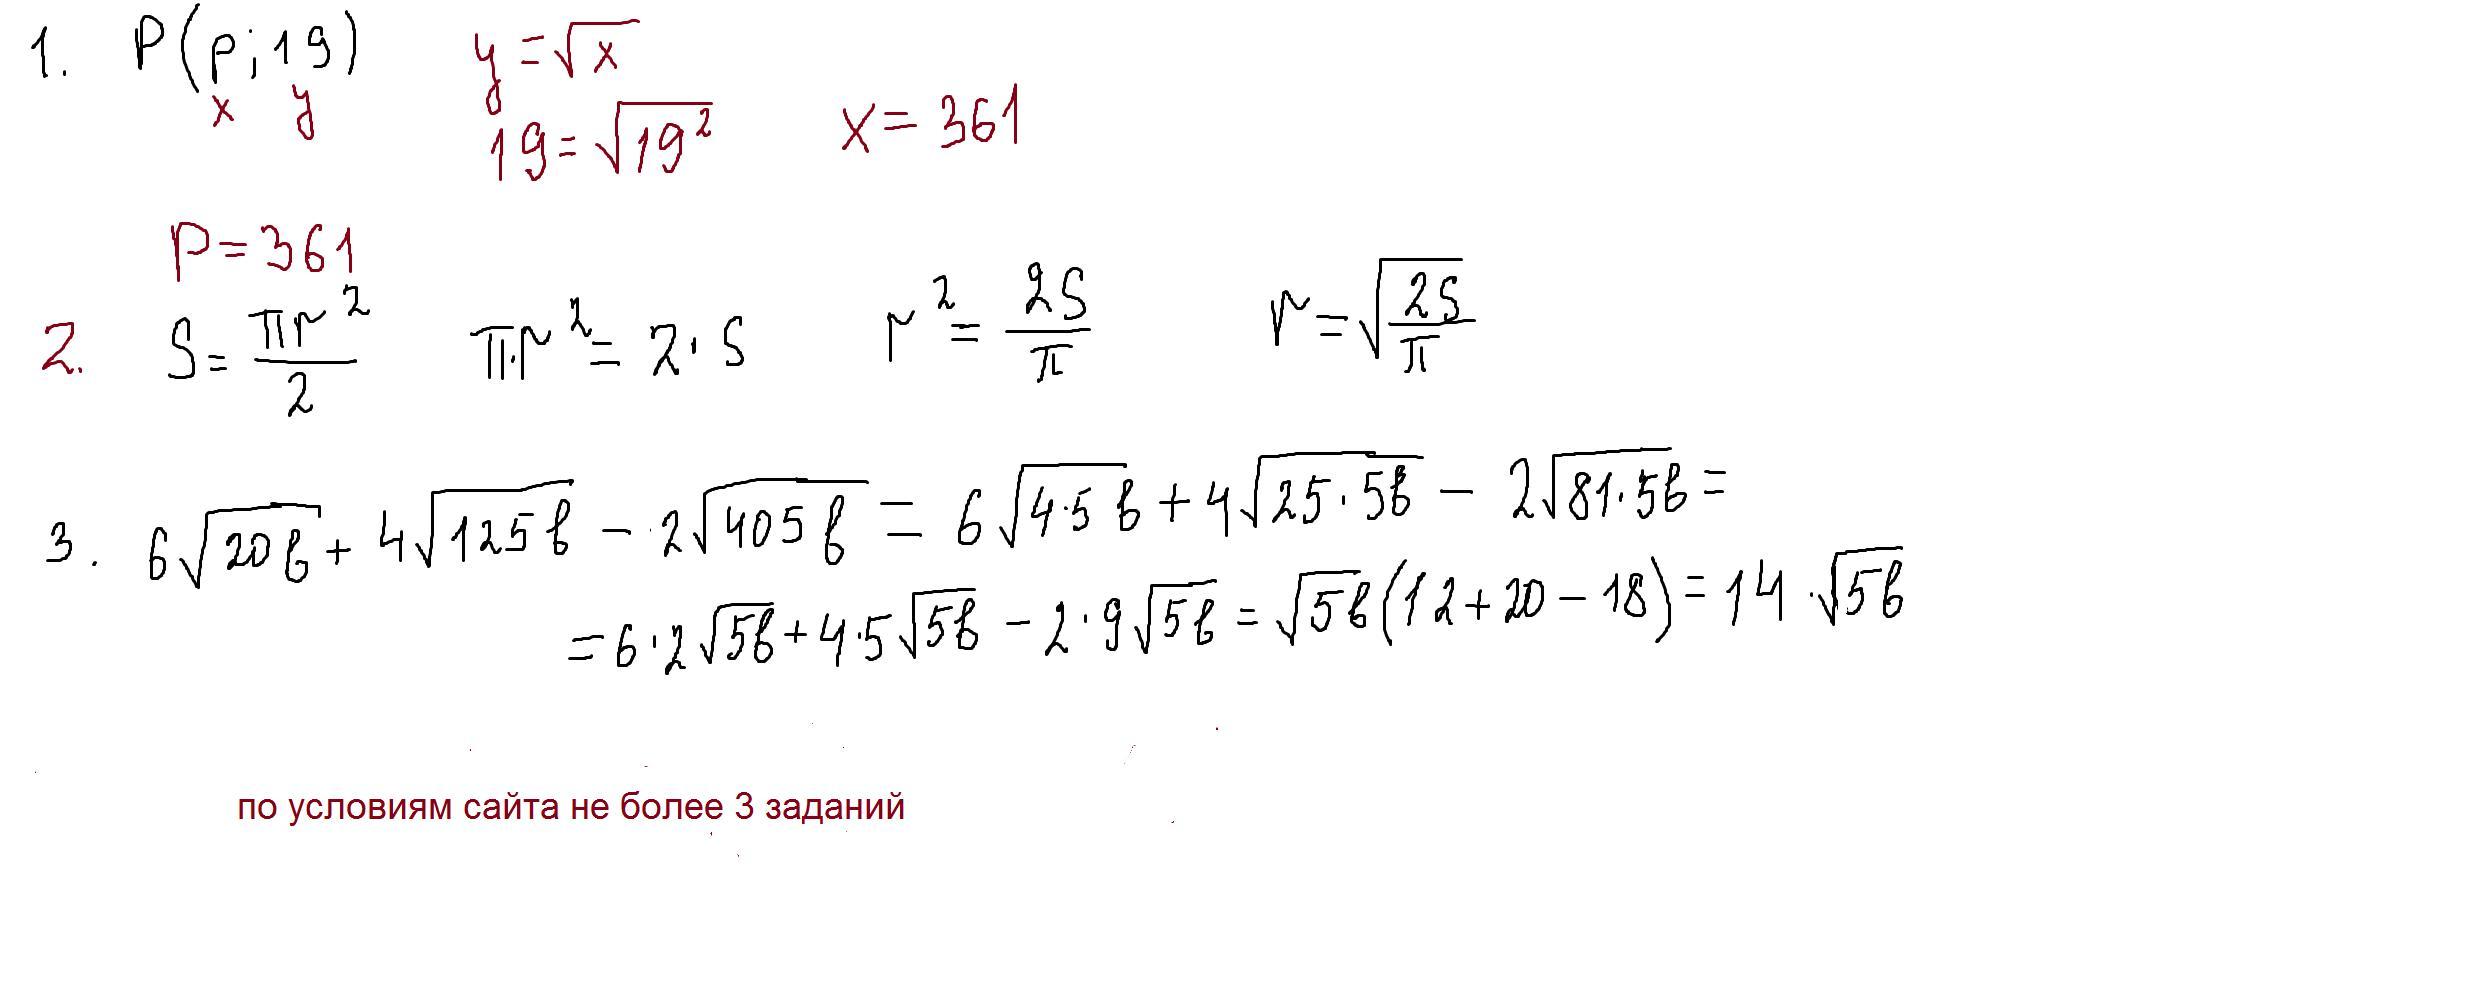 1. P(p;19) y=√x
x y 19=√19² x=361
P=361
2. S=πr²/2 π·r²=2·S r²=2S/π r=√(2S/π)
3. 6√20в+4√125в-2√405в=6√4·5в+4√25·5в-2√81·5в=
=6·2√5в+4·5√5в-2·9√5в=√5в(12+20-18)=14·√5в
по условиям сайта не более 3 заданий